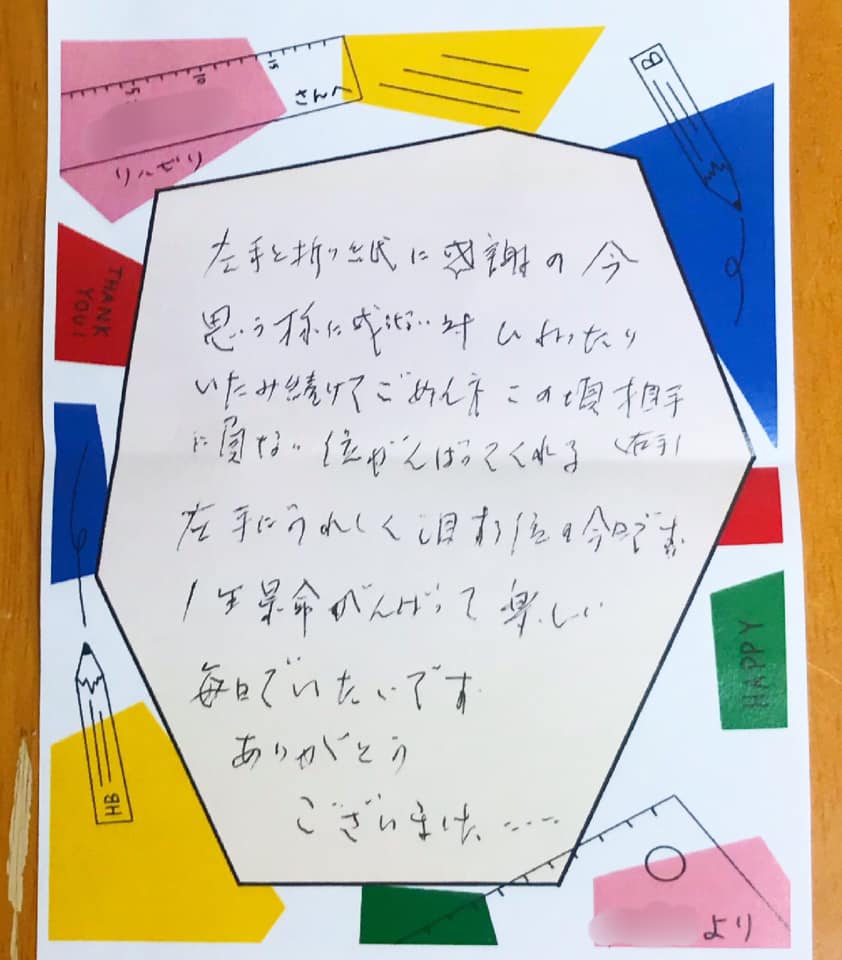 15
10
5
さんへ
リハビリ
B
THANK
YOU!
左手と折り紙に感謝の今
思う様に 対 しかったり
いたみ続けてごめんネ この頃 相手
に負けない位がんばってくれる (右手)
左手にうれしく 位の今日です。
1生景命がんばって楽しい
毎日でいたいです
ありがとう
ございました、----
HAPPY
HB
より